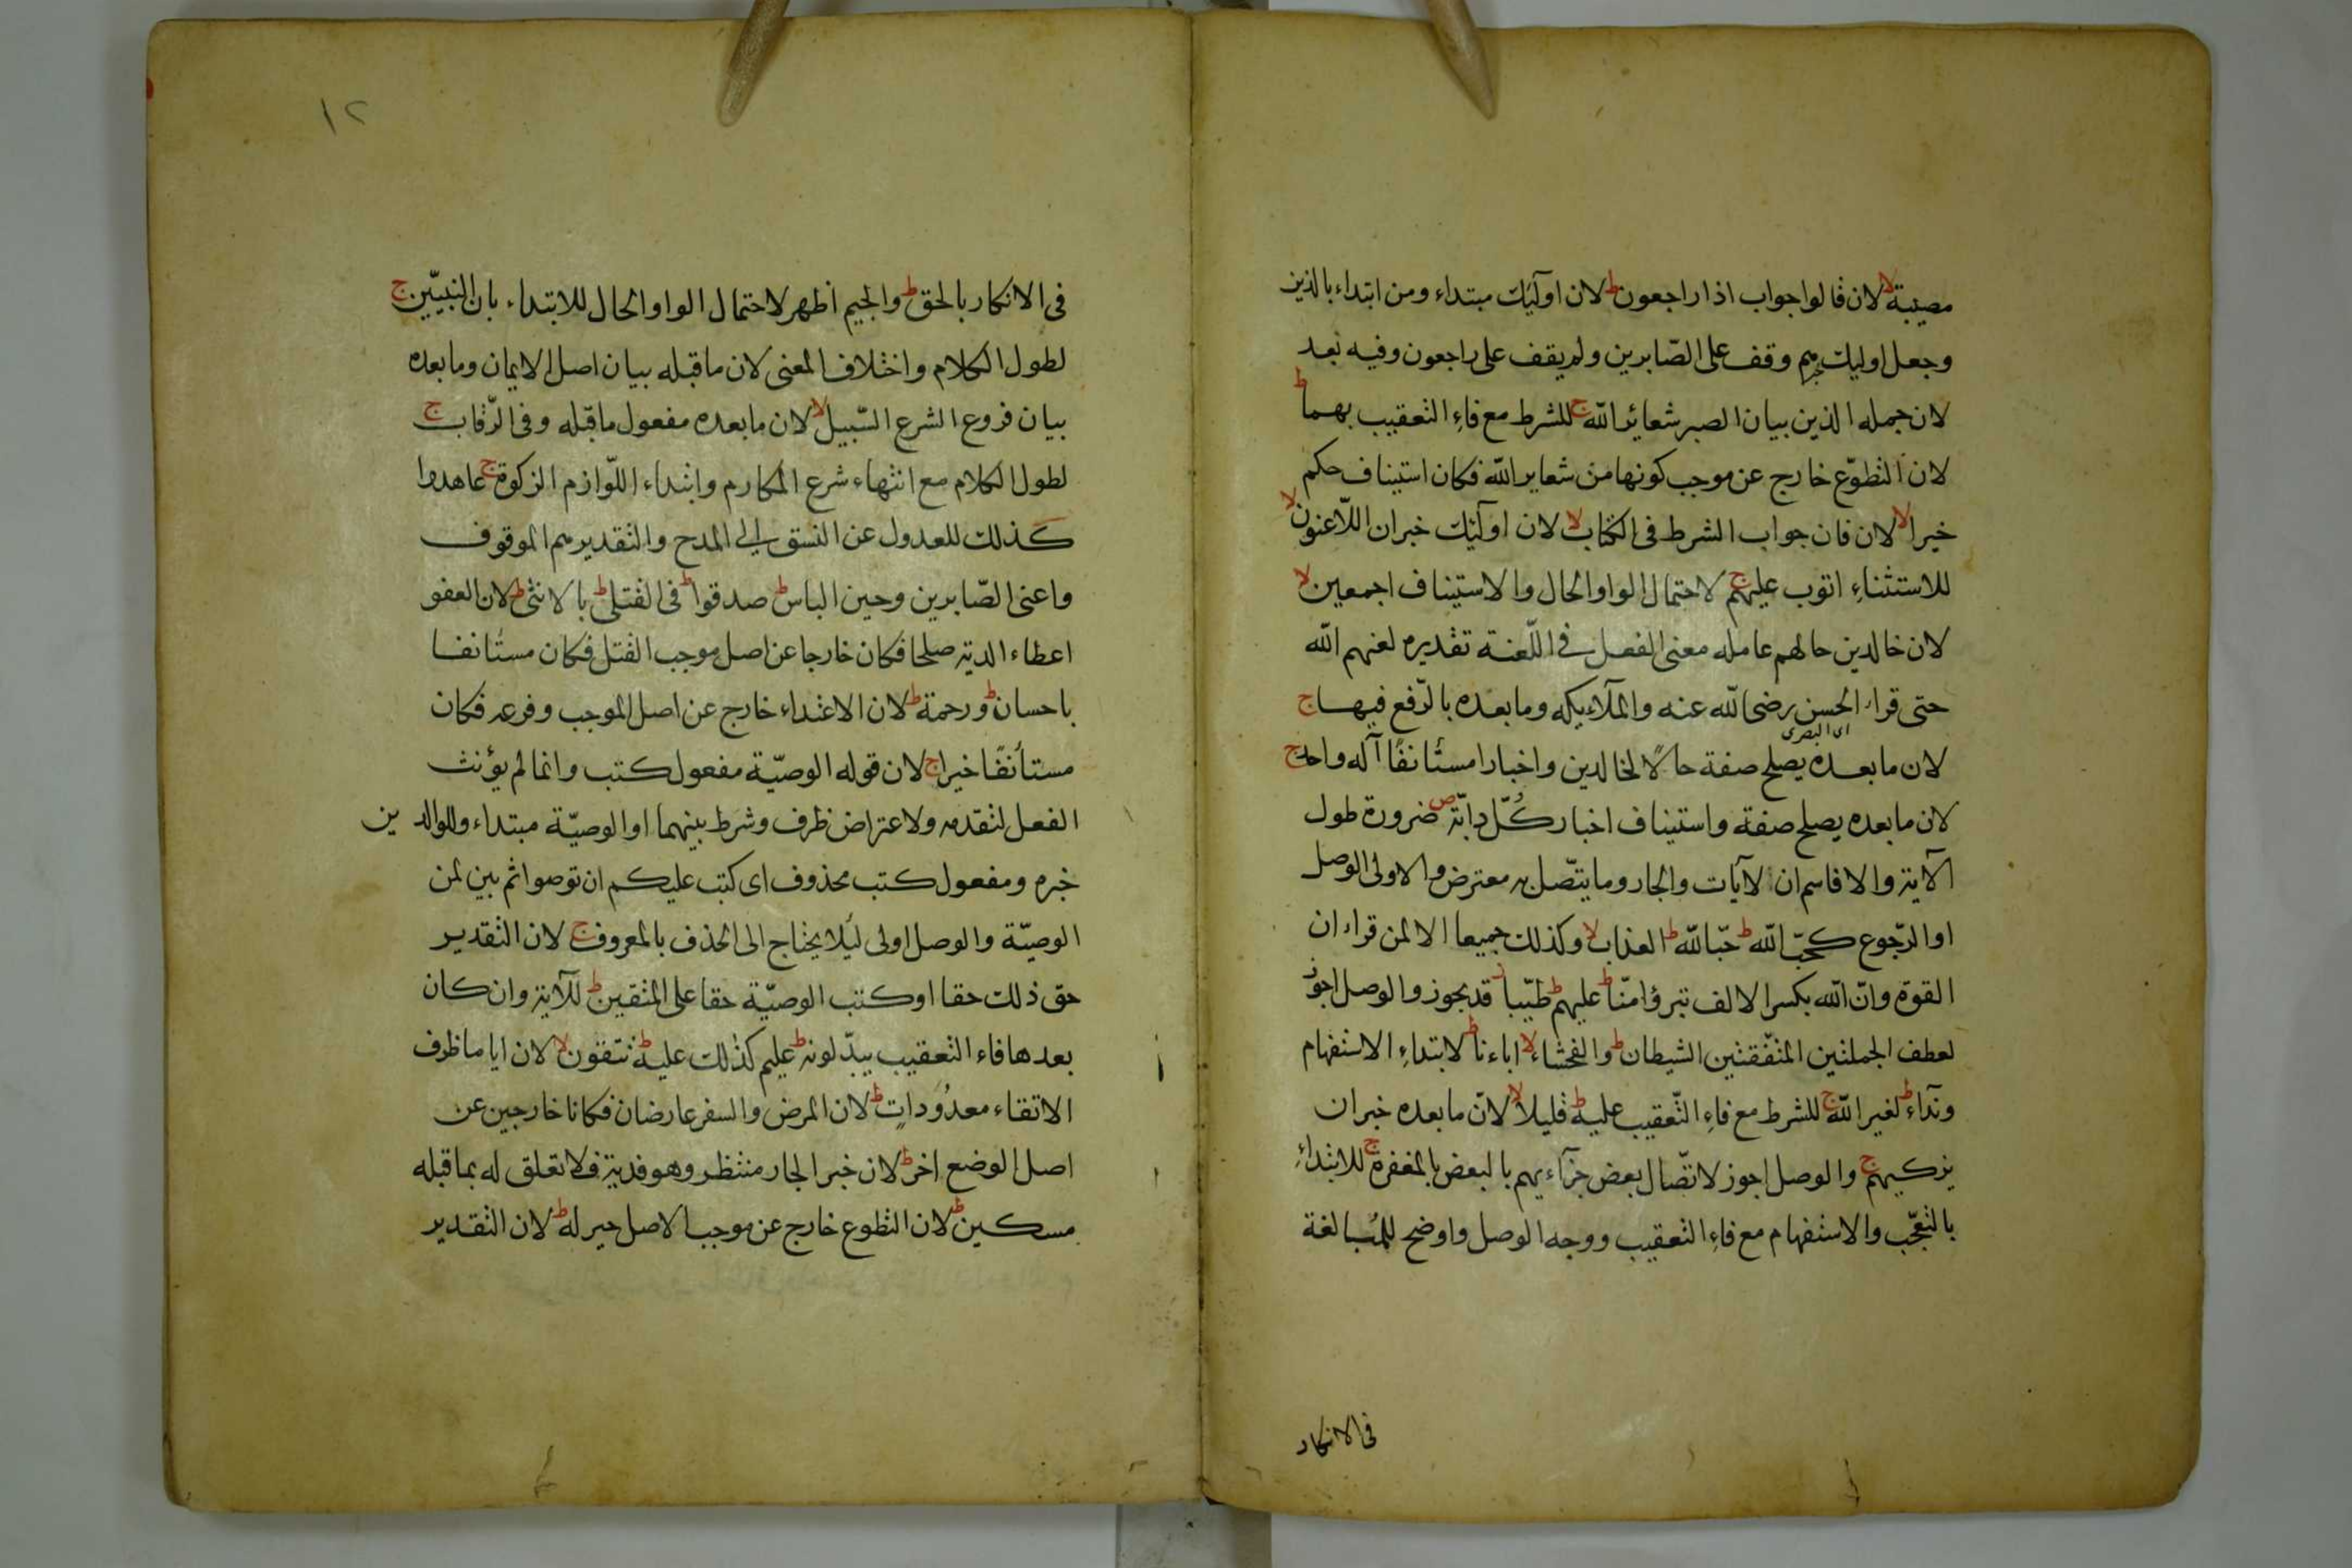 مصيبة لا لان قالوا جواب اذا راجعون ط لان اولئك مبتداء ومن ابتداء بالذين
وجعل اوليك خبرهم وقف على الصّابرين ولم يقف على راجعون وفيه بعد
لان جمله الذين بيان الصبر شعائر الله ج للشرط مع فاء التعقيب بهما ط
لان التطوّع خارج عن موجب كونها من شعاير الله فكان استيناف حكم
خيرا لا لان فان جواب الشرط فى الكتاب لا لان اولئك خبران اللّاعنون لا
للاستثناء اتوب عليهم ج لاحتمال الواو الحال والاستيناف اجمعين لا
لان خالدين حالهم عامله معنى الفعل فى اللّعنة تقديره لعنهم الله
حتى قراء الحسن رضى الله عنه والملاءيكه وما بعده بالرّفع فيها ج
اى البصرى
لان ما بعده يصلح صفة حالًا لخالدين واخبارا مستأنفًا آله واحد ج
لان ما بعده يصلح صفة واستيناف اخبار كُلّ دابّة ص ضرورة طول
الآية والا فاسم ان لآيات والجار وما يتّصل به معترض والاولى الوصل
او الرّجوع كحبّ الله ط حبّا لله ط العذاب لا وكذلك جميعا الا لمن قراء ان
القوة وانّ الله بكسر الالف تبرؤا منّا ط عليهم ط طيّبا ز قد يجوز والوصل اجوز
لعطف الجملتين المتفقتين الشيطان ط والفحشاء لا اباءنا ط لابتداء الاستفهام
ونداء ط لغير الله ج للشرط مع فاء التّعقيب عليه ط قليلا لا لانّ ما بعده خبران
يزكيهم ج والوصل اجوز لاتّصال بعض جزآءيهم بالبعض بالمغفرة ج للابتداء
بالتعجّب والاستفهام مع فاء التعقيب ووجه الوصل واوضح للمبالغة
فى الانكار
١٢
فى الانكار بالحق ط والجيم اظهر لاحتمال الواو الحال للابتداء بان النبيّين ج
لطول الكلام واختلاف المعنى لان ما قبله بيان اصل الايمان وما بعده
بيان فروع الشرع السّبيل لا لان ما بعده مفعول ما قبله وفى الرّقاب ج
لطول الكلام مع انتهاء شرع المكارم وابتداء اللّوازم الزكوة ج عاهدوا
كذلك للعدول عن النسق الى المدح والتقدير هم الموفون
واعنى الصّابرين وحين الباس ط صدقوا ط فى القتلى ط بالانثى ط لان العفو
اعطاء الدية صلحا فكان خارجا عن اصل موجب القتل فكان مستأنفا
باحسان ط ورحمة ط لان الاعتداء خارج عن اصل الموجب وفرعه فكان
مستأنفًا خيرا ج لان قوله الوصيّة مفعول كتب وانما لم يؤنث
الفعل لتقدمه ولاعتراض ظرف وشرط بينهما او الوصيّة مبتداء وللوالدين
خبره ومفعول كتب محذوف اى كتب عليكم ان توصوا ثم بين لمن
الوصيّة والوصل اولى ليلا يحتاج الى الحذف بالمعروف ج لان التقدير
حق ذلك حقا او كتب الوصيّة حقا على المتقين ط للآية وان كان
بعدها فاء التعقيب يبدّلونه ط عليم كذلك عليه ط تتقون لا لان اياما ظرف
الاتقاء معدُودَاتٍ ط لان المرض والسفر عارضان فكانا خارجين عن
اصل الوضع اخر ط لان خبر الجار منتظر وهو فدية فلا تعلق له بما قبله
مسكين ط لان التطوع خارج عن موجب الاصل خير له ط لان التقدير